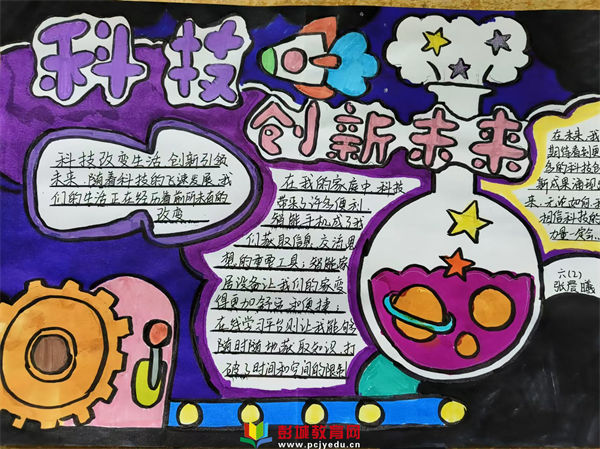 科技
创新未来
科技改变生活 创新引领
未来。随着科技的飞速发展，我
们的生活正在经历着前所未有的
改变
在我的家庭中，科技
带来了许多便利
智能手机成了我
们获取信息、交流思
想的重要工具；智能家
居设备让我们的家变
得更加舒适和便捷；
在线学习平台则让我能够
随时随地获取知识，打
破了时间和空间的限制
在未来，我
期待看到更
多的科技创
新成果涌现
来，无论如何，我
相信科技的
力量一定会
六(2)
张
彭城教育网
www.pcjyedu.cn